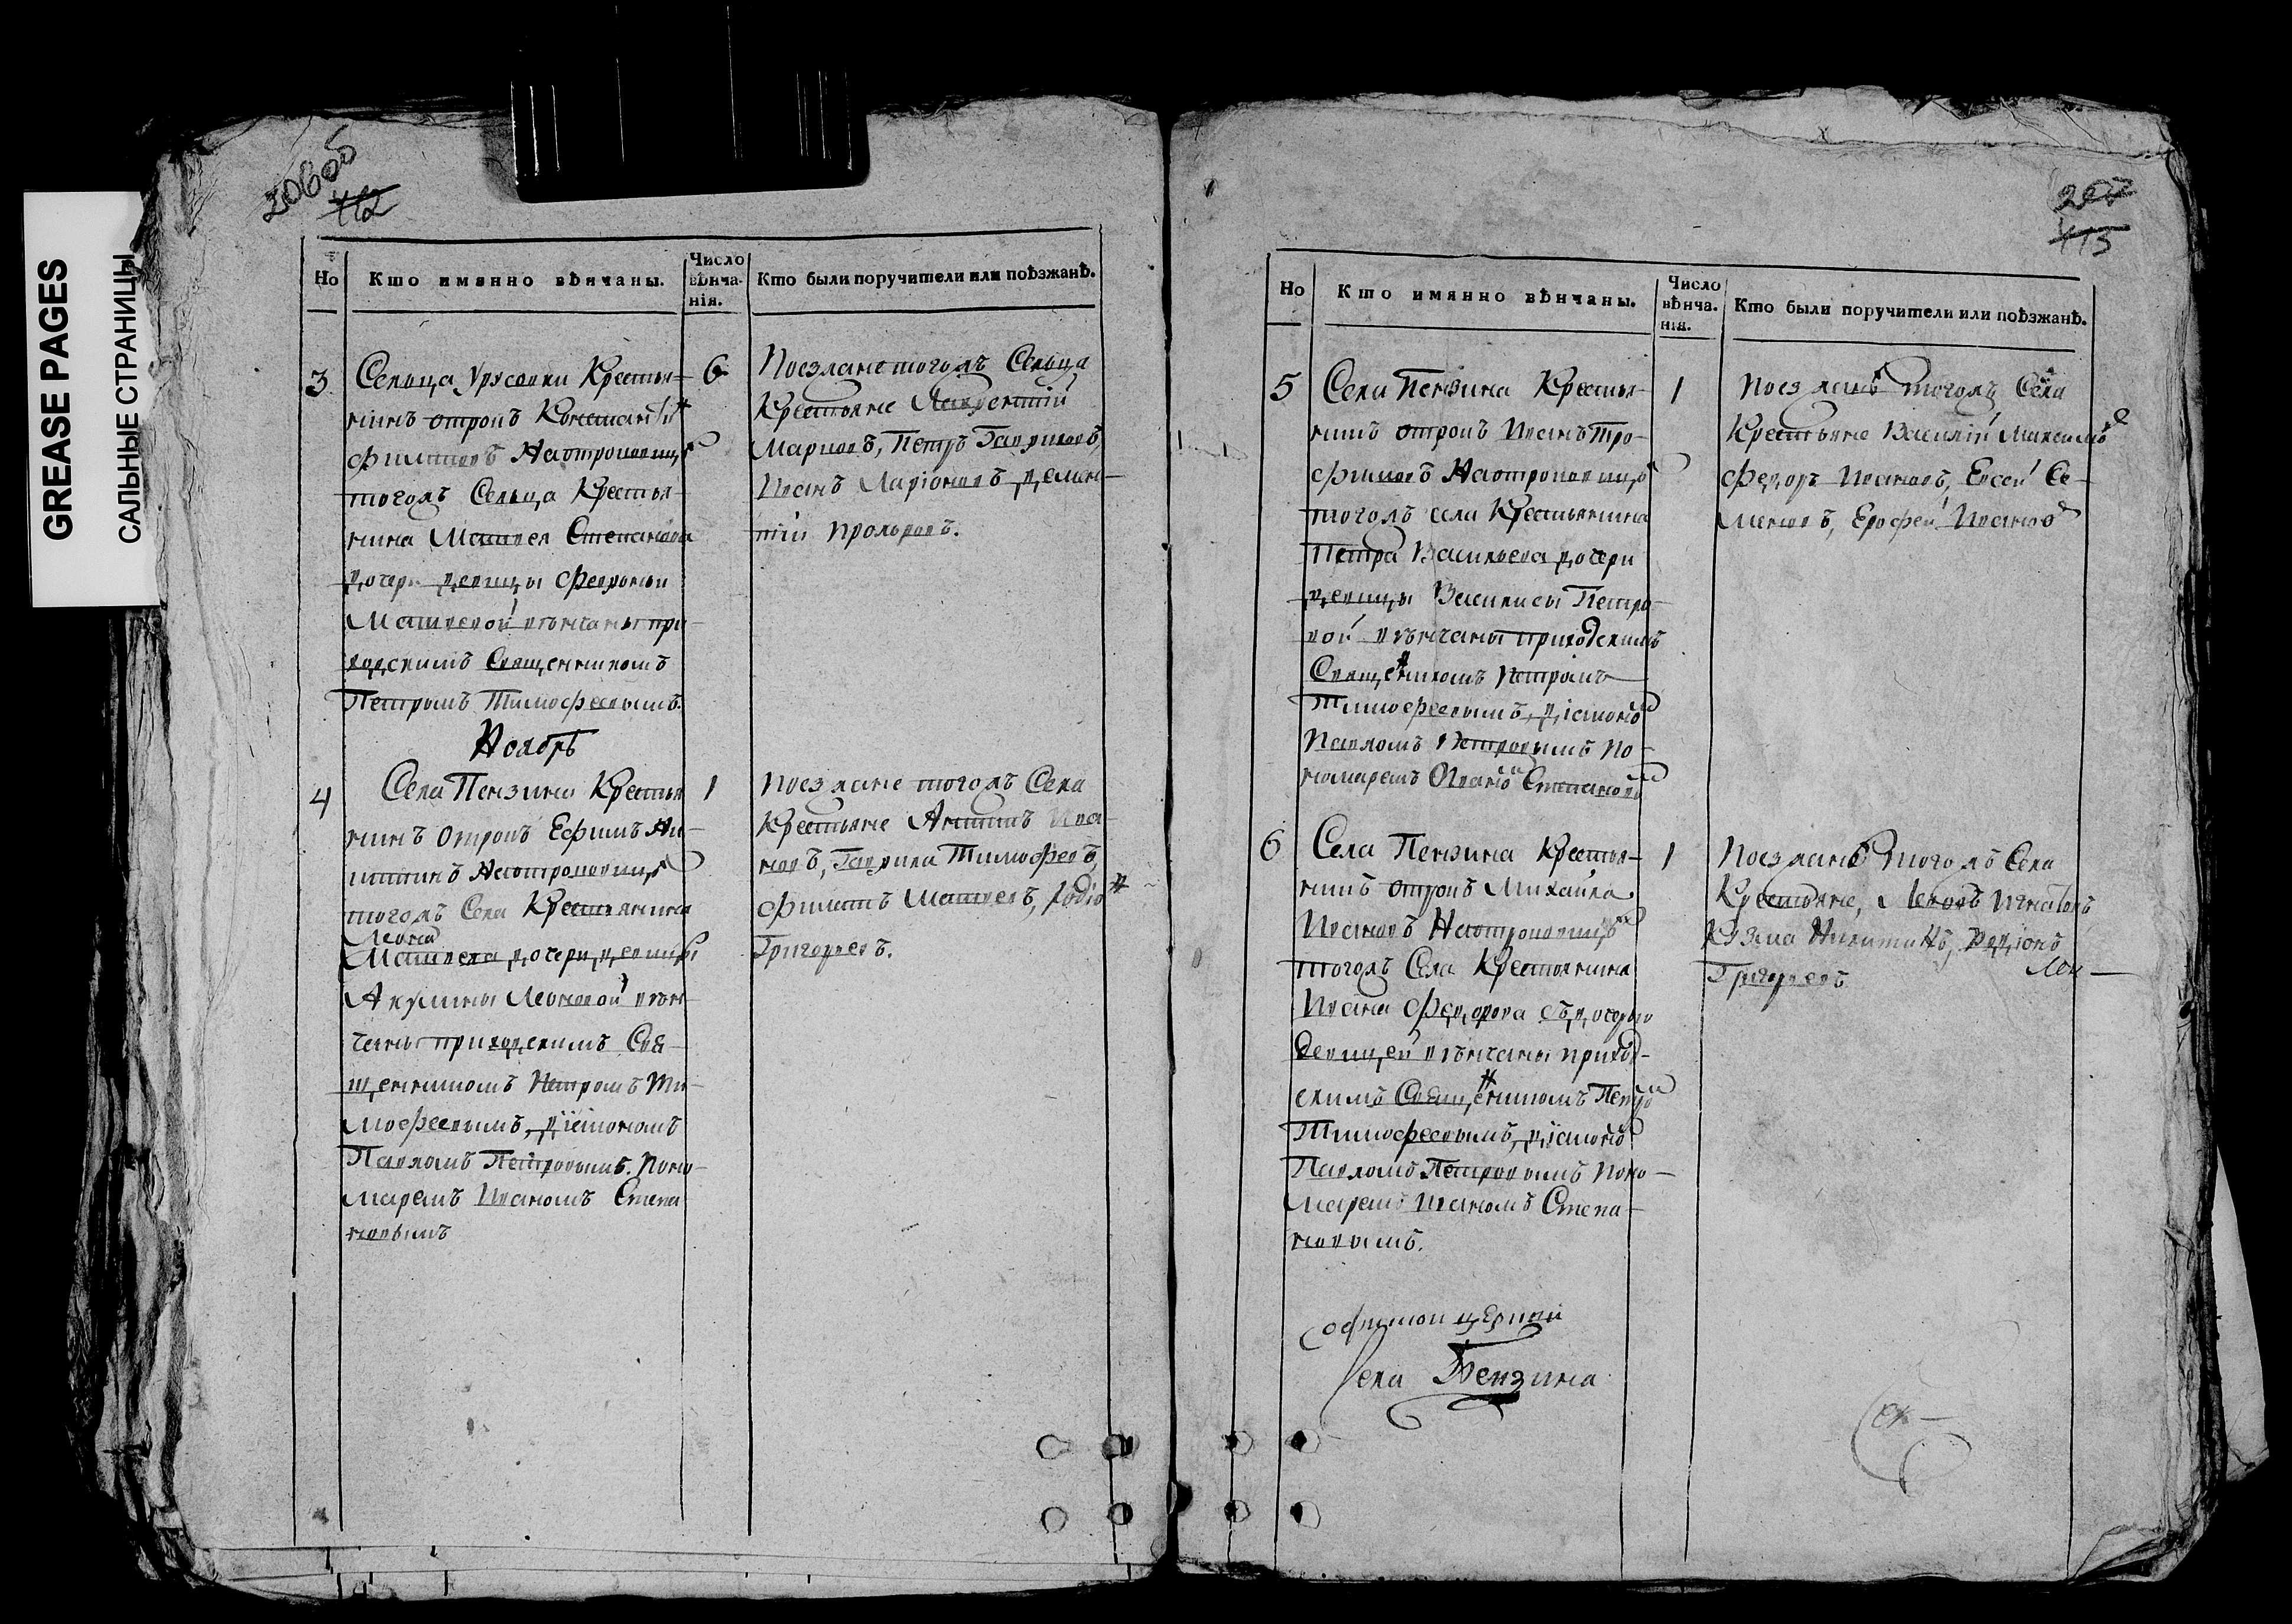 GREASE PAGES
САЛЬНЫЕ СТРАНИЦЫ
206об
112
Но
Кто имянно вѣнчаны.
Число вѣнча-
нія.
Кто были поручители или поѣзжанѣ.
3
Сельца Урусовки Крестья-
нинъ отрокъ Константин
Филиповъ Настропонищъ
тогожъ Сельца Крестья-
нина Матвея Степанова
дочери девицы Февроньи
Матвевой венчаны при-
ходскимъ Священникомъ
Петромъ Тимофеевымъ.
6
Поезжане тогожъ Сельца
Крестьяне Лаврентий
Марковъ, Петръ Гавриловъ,
Иванъ Ларіоновъ, Демен-
тій Прохоровъ.
Ноябрь
4
Села Пензина Крестья
нинъ отрокъ Ефимъ Ан-
типинъ
тогожъ Села Крестьянина
Леона
Матвева дочери девицы
Акулины Леоновой вен-
чаны приходскимъ Свя-
щенникомъ Петромъ Ти-
мофеевымъ, діякономъ
Павломъ Петровымъ. Поно-
маремъ Иваномъ Степа
новымъ
1
Поезжане тогожъ Села
Крестьяне Антипъ Ива-
новъ, Гаврила Тимофевъ,
Филипъ Матвевъ, Родіон
Григорьевъ.
207
113
Но
Кто имянно вѣнчаны.
Число
вѣнча.
нія.
Кто были поручители или поѣзжанѣ.
5
Села Пензина Крестья-
нинъ отрокъ Иванъ Тро-
фимовъ
тогожъ села Крестьянина
Петра Васильева дочери
девицы Василисы Петро-
вой венчаны приходскимъ
Священникомъ Петромъ
Тимофеевымъ, діяконом
Павломъ Петровымъ По-
номаремъ Иваном Степановым
1
Поезжанѣ тогожъ Села
Крестьяне Василий Максимов
Федоръ Ивановъ, Евсей Се-
меновъ, Ерофей Иванов
6
Села Пензина Крестья-
нинъ отрокъ Михайла
Ивановъ
тогожъ Села Крестьянина
Ивана Федорова съ дочерью
девицей венчаны приход-
скимъ Священникомъ Петром
Тимофеевымъ, діяконом
Павломъ Петровымъ Поно-
маремъ Иваномъ Степа-
новымъ.
1
Поезжанѣ тогожъ Села
Крестьяне, Леонъ Игнатовъ
Кузма Никитинъ, Родіонъ
Григорьевъ
Софійской церкви
Села Пензина